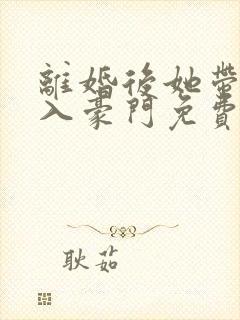 離婚後她帶
入豪門免費
耿茹